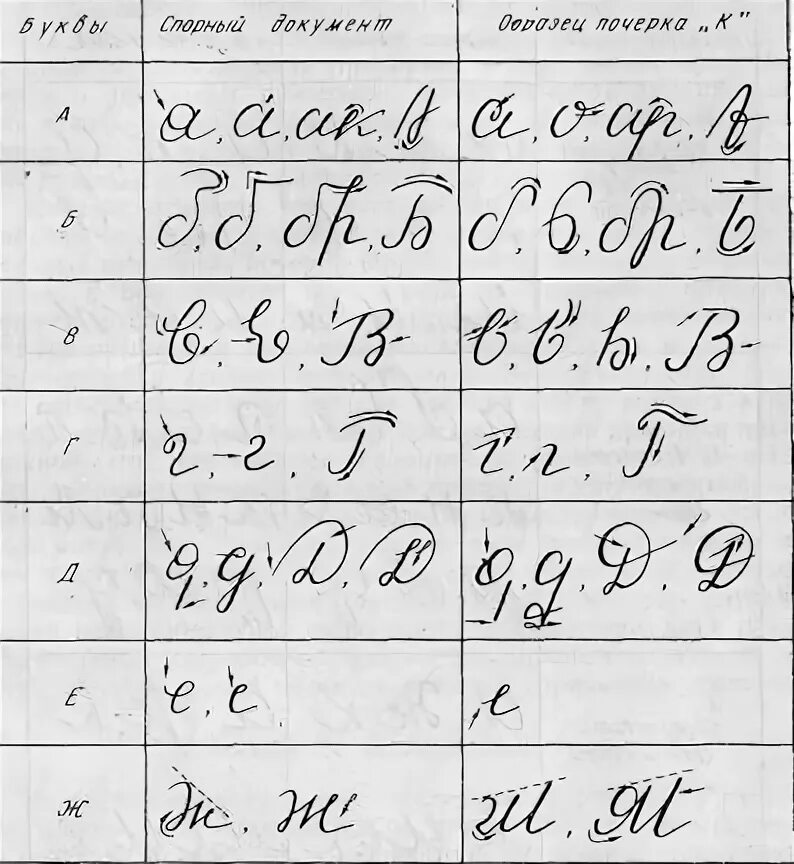 Буквы Спорный документ Образец почерка „К"
А а, а, ак, А а, о, ар, А
Б б б, бр, Б б, б, бр, Б
В в, в, В в, в, в, В
Г г – г, Г г, г, Г
Д д, д, Д, Д д, д, Д, Д
Е е, е, е
Ж ж, Ж Ж, Ж